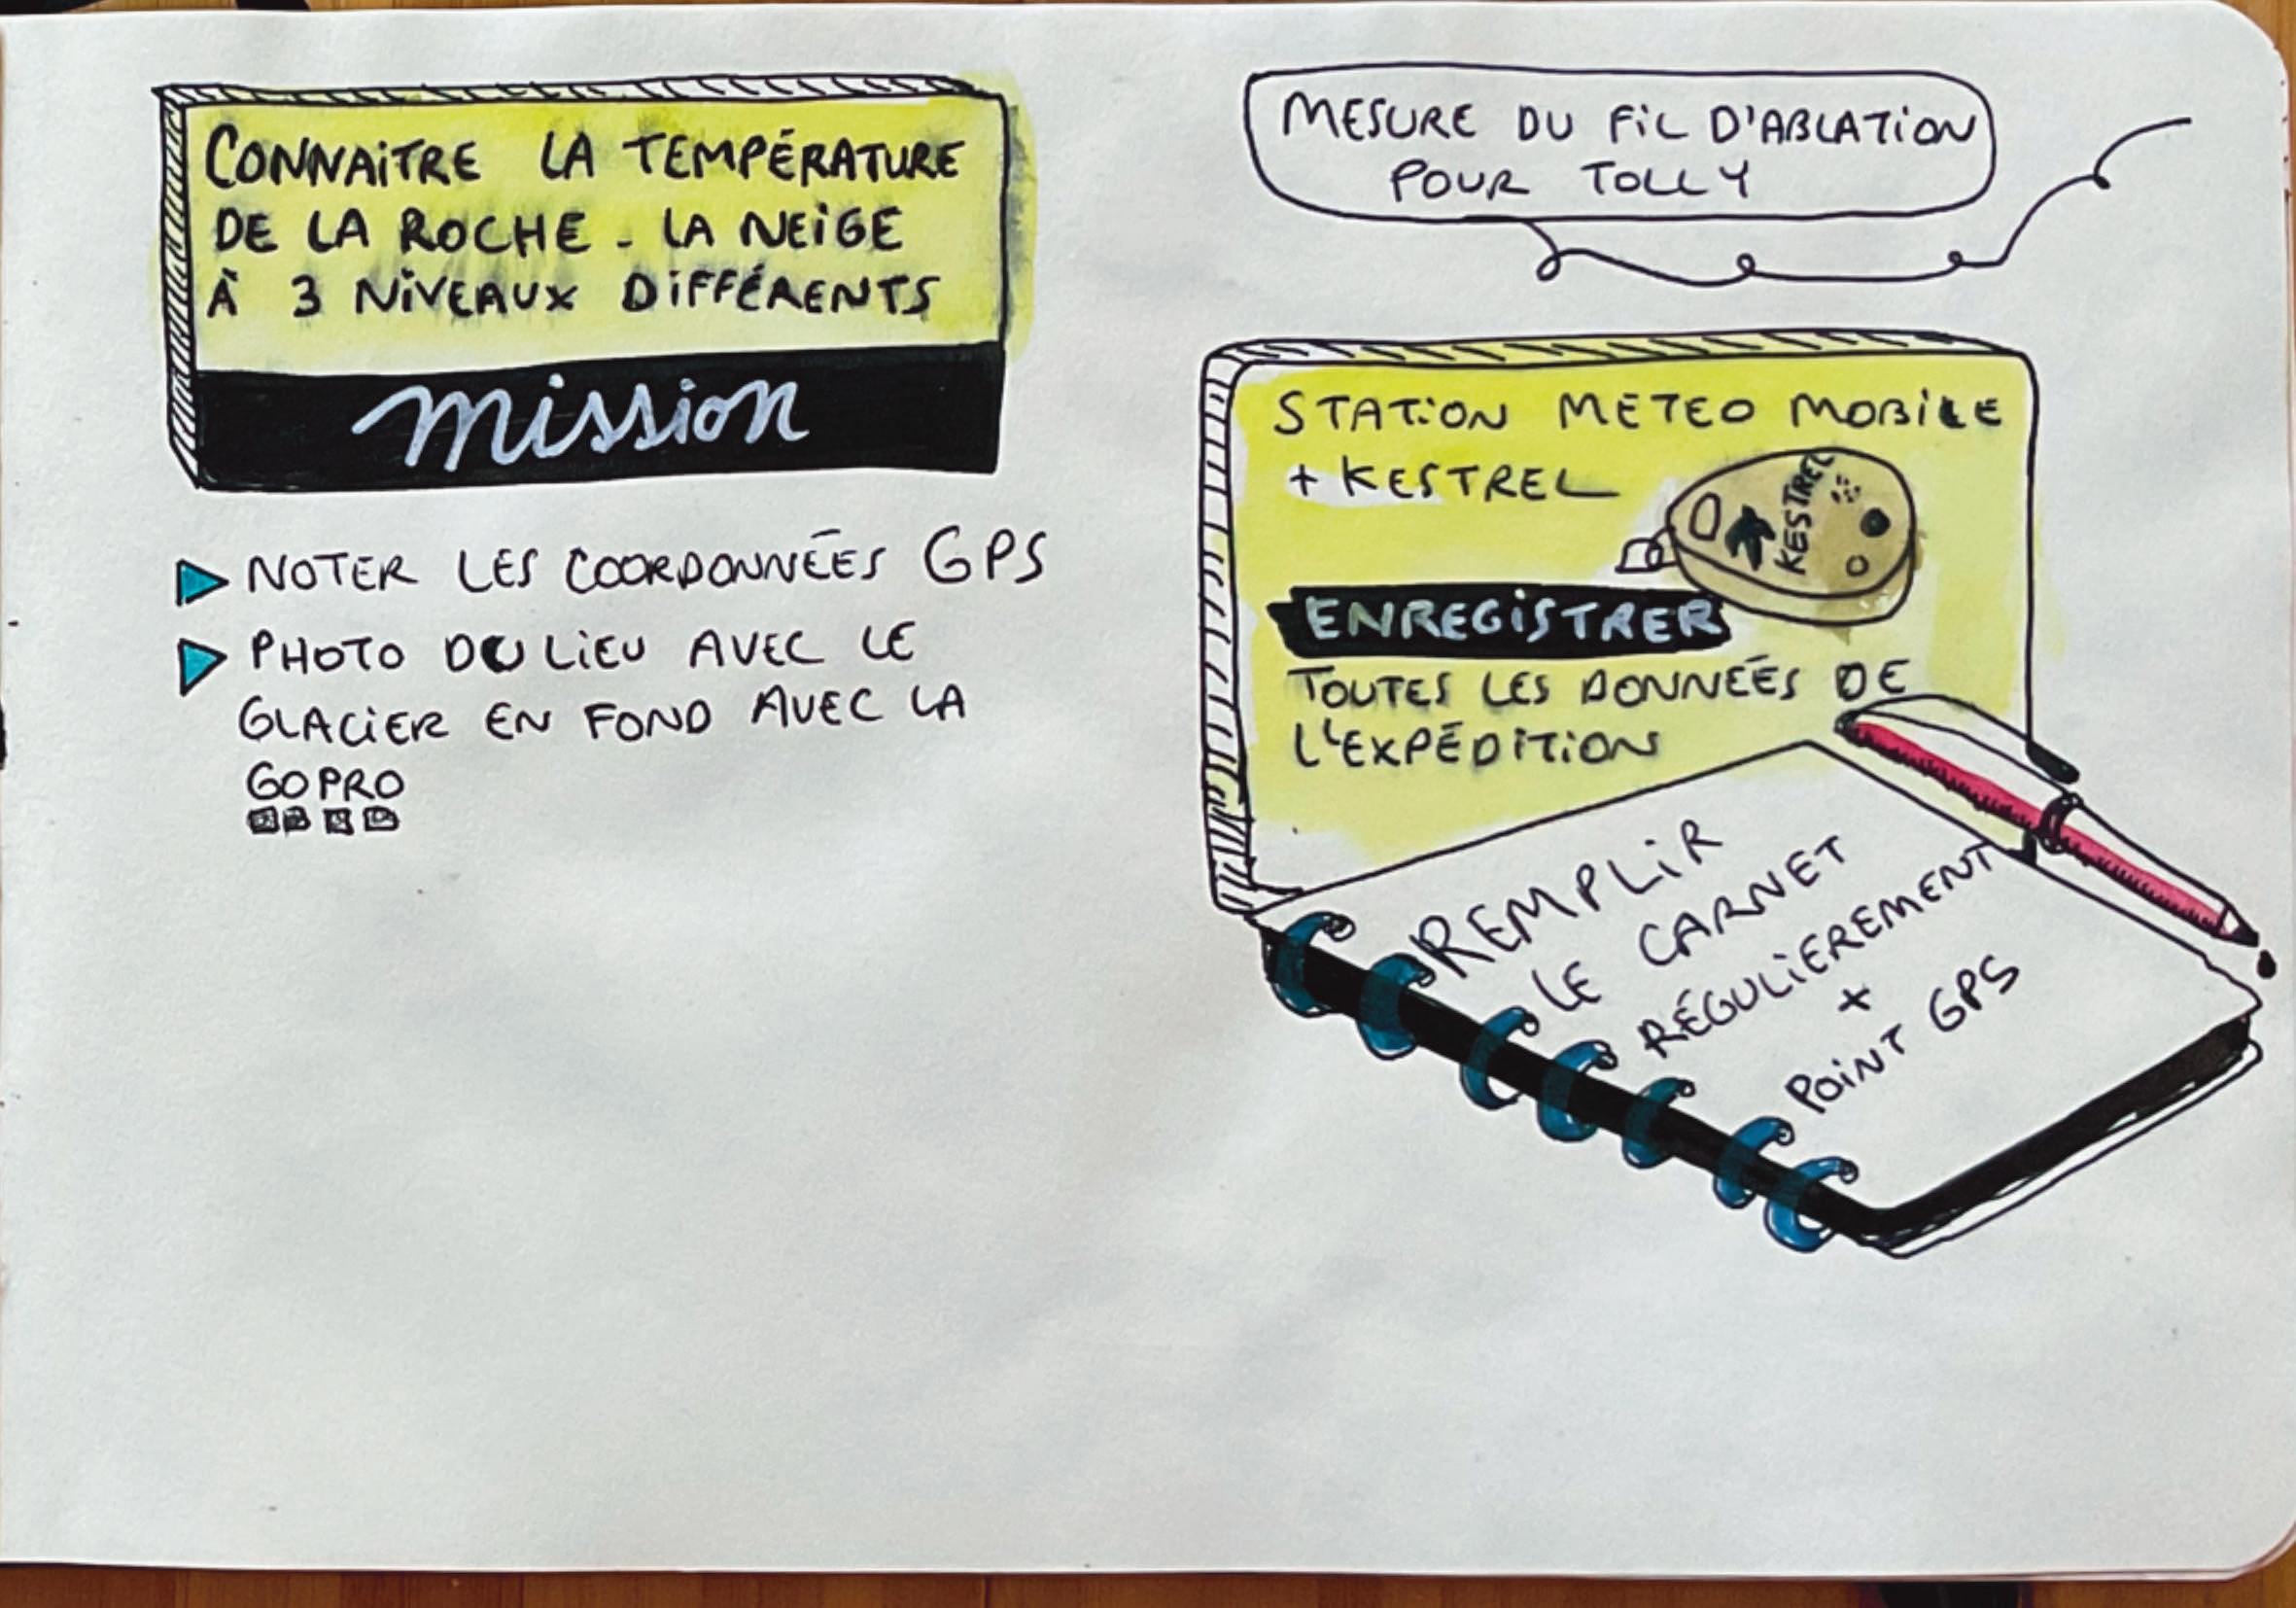 CONNAiTRE LA TEMPÉRATURE
DE LA ROCHE - LA NEiGE
À 3 NiVEAUX DiFFÉRENTS
mission
NOTER LES COORDONNÉES GPS
PHOTO DU LiEU AVEC LE
GLACiER EN FOND AVEC LA
GOPRO
MESURE DU FiL D'ABLATiON
POUR TOLLY
STATiON METEO MOBiLE
+ KESTREL
KESTREL
ENREGiSTRER
TOUTES LES DONNÉES DE
L'EXPÉDiTiON
REMPLiR
LE CARNET
RÉGULiEREMENT
+
POiNT GPS